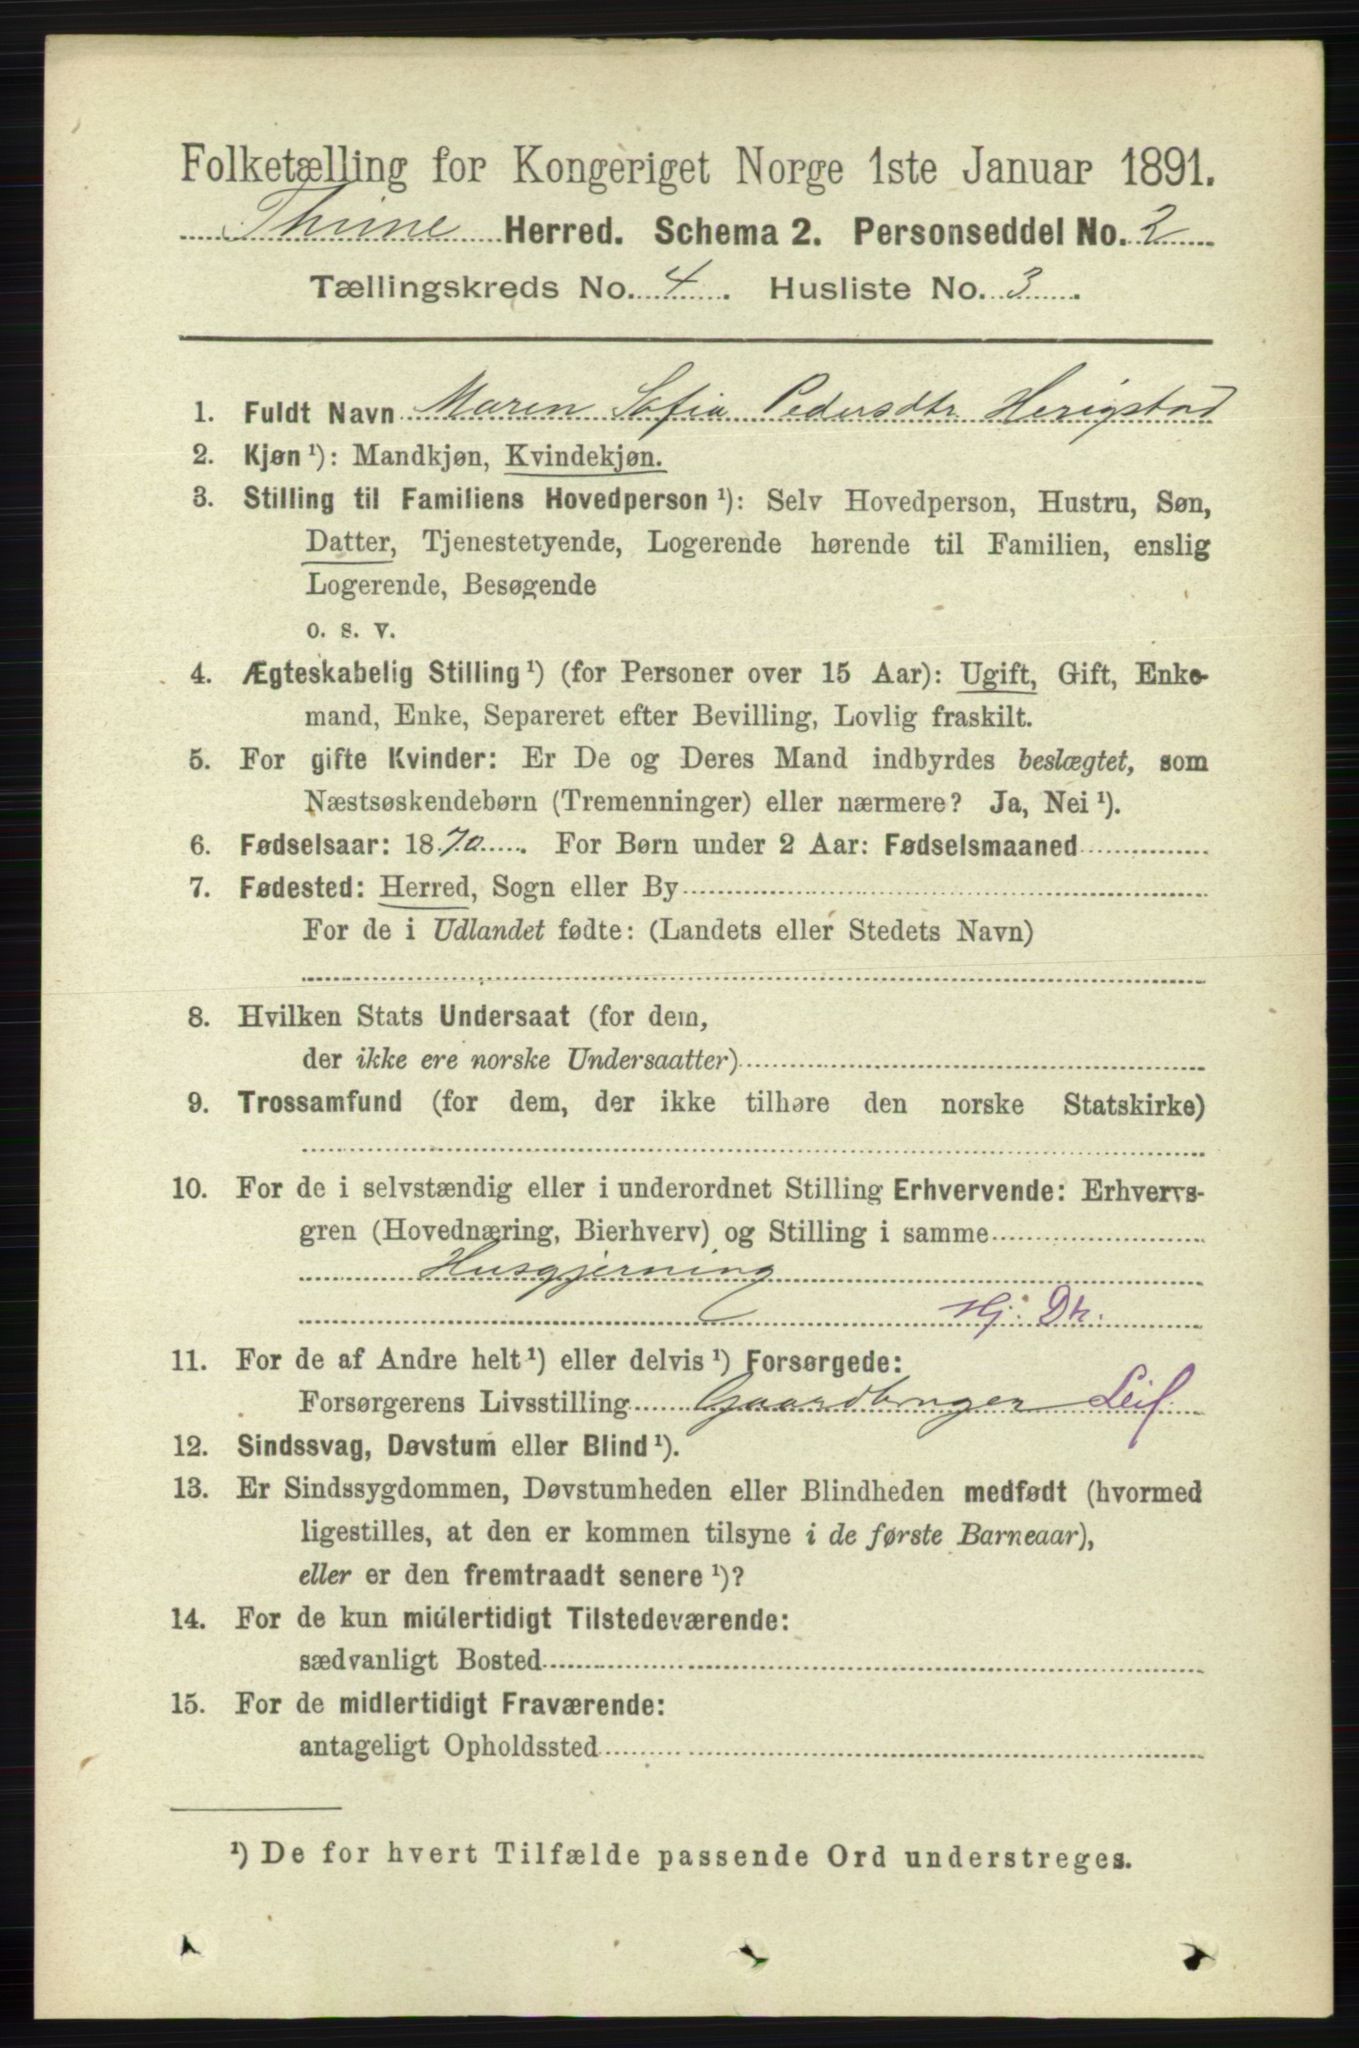 Folketælling for Kongeriget Norge 1ste Januar 1891.
Thime Herred. Schema 2. Personseddel No. 2
Tællingskreds No. 4. Husliste No. 3.
1. Fuldt Navn Maren Sofia Pedersdtr. Herigstad
2. Kjøn ¹): Mandkjøn, Kvindekjøn.
3. Stilling til Familiens Hovedperson ¹): Selv Hovedperson, Hustru, Søn,
Datter, Tjenestetyende, Logerende hørende til Familien, enslig
Logerende, Besøgende
o. s. v.
4. Ægteskabelig Stilling ¹) (for Personer over 15 Aar): Ugift, Gift, Enke-
mand, Enke, Separeret efter Bevilling, Lovlig fraskilt.
5. For gifte Kvinder: Er De og Deres Mand indbyrdes beslægtet, som
Næstsøskendebørn (Tremenninger) eller nærmere? Ja, Nei ¹).
6. Fødselsaar: 1870. For Børn under 2 Aar: Fødselsmaaned
7. Fødested: Herred, Sogn eller By
For de i Udlandet fødte: (Landets eller Stedets Navn)
8. Hvilken Stats Undersaat (for dem,
der ikke ere norske Undersaatter)
9. Trossamfund (for dem, der ikke tilhøre den norske Statskirke)
10. For de i selvstændig eller i underordnet Stilling Erhvervende: Erhvervs-
gren (Hovednæring, Bierhverv) og Stilling i samme
Husgjerning
Hj. Dtr.
11. For de af Andre helt ¹) eller delvis ¹) Forsørgede:
Forsørgerens Livsstilling Gaardbruger Leil.
12. Sindssvag, Døvstum eller Blind ¹).
13. Er Sindssygdommen, Døvstumheden eller Blindheden medfødt (hvormed
ligestilles, at den er kommen tilsyne i de første Barneaar),
eller er den fremtraadt senere ¹)?
14. For de kun midlertidigt Tilstedeværende:
sædvanligt Bosted
15. For de midlertidigt Fraværende:
antageligt Opholdssted
¹) De for hvert Tilfælde passende Ord understreges.